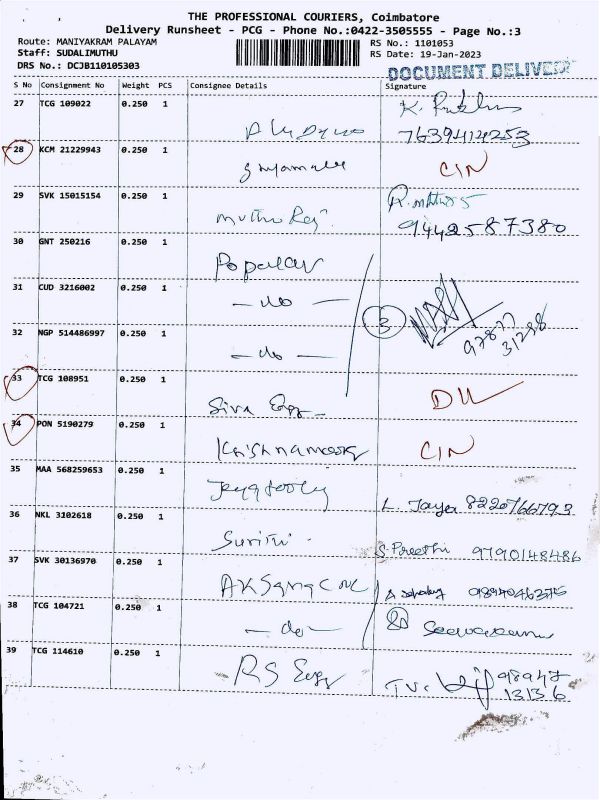 THE PROFESSIONAL COURIERS, Coimbatore
Delivery Runsheet - PCG - Phone No.:0422-3505555 - Page No.:3
Route: MANIYAKRAM PALAYAM RS No.: 1101053
Staff: SUDALIMUTHU RS Date: 19-Jan-2023
DRS No.: DCJB110105303 DOCUMENT DELIVER
S No Consignment No Weight PCS Consignee Details Signature
27 TCG 109022 0.250 1
7639414253
28 KCM 21229943 0.250 1 CIN
29 SVK 15015154 0.250 1 Muthu Raj
9442587380
30 GNT 250216 0.250 1 Popular
31 CUD 3216002 0.250 1 - do - 3
32 NGP 514486997 0.250 1 - do - 97877 31298
33 TCG 108951 0.250 1 Siva Engg DL
34 PON 5190279 0.250 1 CIN
35 MAA 568259653 0.250 1 L. Jaya 8220766793
36 NKL 3102618 0.250 1 S. Preethi 9790148486
37 SVK 30136970 0.250 1
38 TCG 104721 0.250 1 - do -
39 TCG 114610 0.250 1 RS Engg 98947
13136